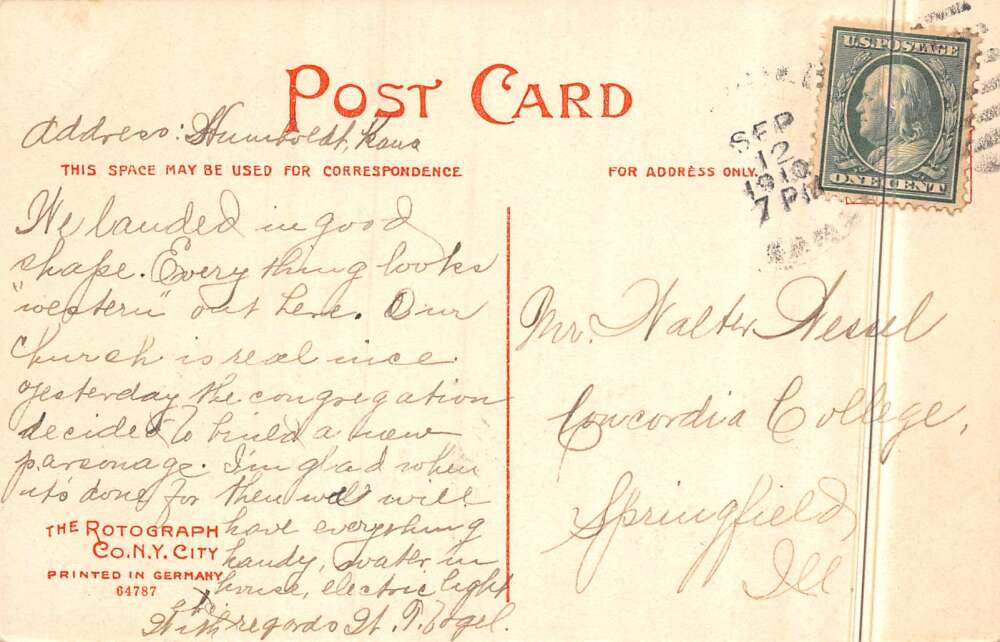 POST CARD
Address: Humboldt, Kans
THIS SPACE MAY BE USED FOR CORRESPONDENCE
We landed in good
shape. Everything looks
"western" out here. Our
church is real nice.
Yesterday the congregation
decided to build a new
parsonage. I'm glad when
it's done for then we will
have everything
handy, water in
house, electric light
etc.
With regards H. T. Vogel.
THE ROTOGRAPH
CO. N.Y. CITY
PRINTED IN GERMANY
64787
FOR ADDRESS ONLY.
SEP
12
1910
7 PM
U.S. POSTAGE
ONE CENT
Mr. Walter Nessel
Concordia College,
Springfield,
Ill